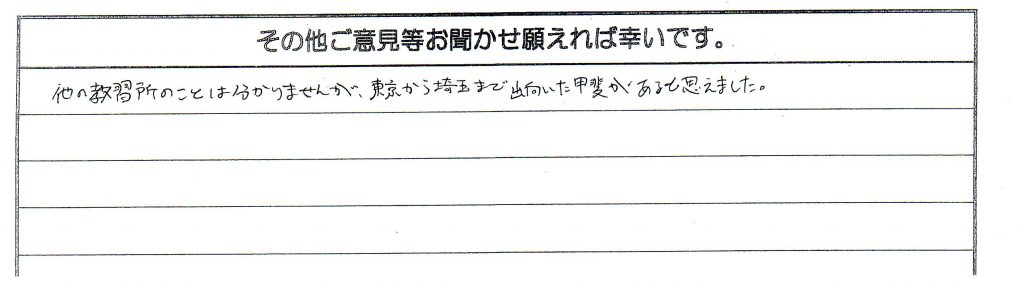 その他ご意見等お聞かせ願えれば幸いです。
他の教習所のことは分かりませんが、東京から埼玉まで出向いた甲斐があると思えました。